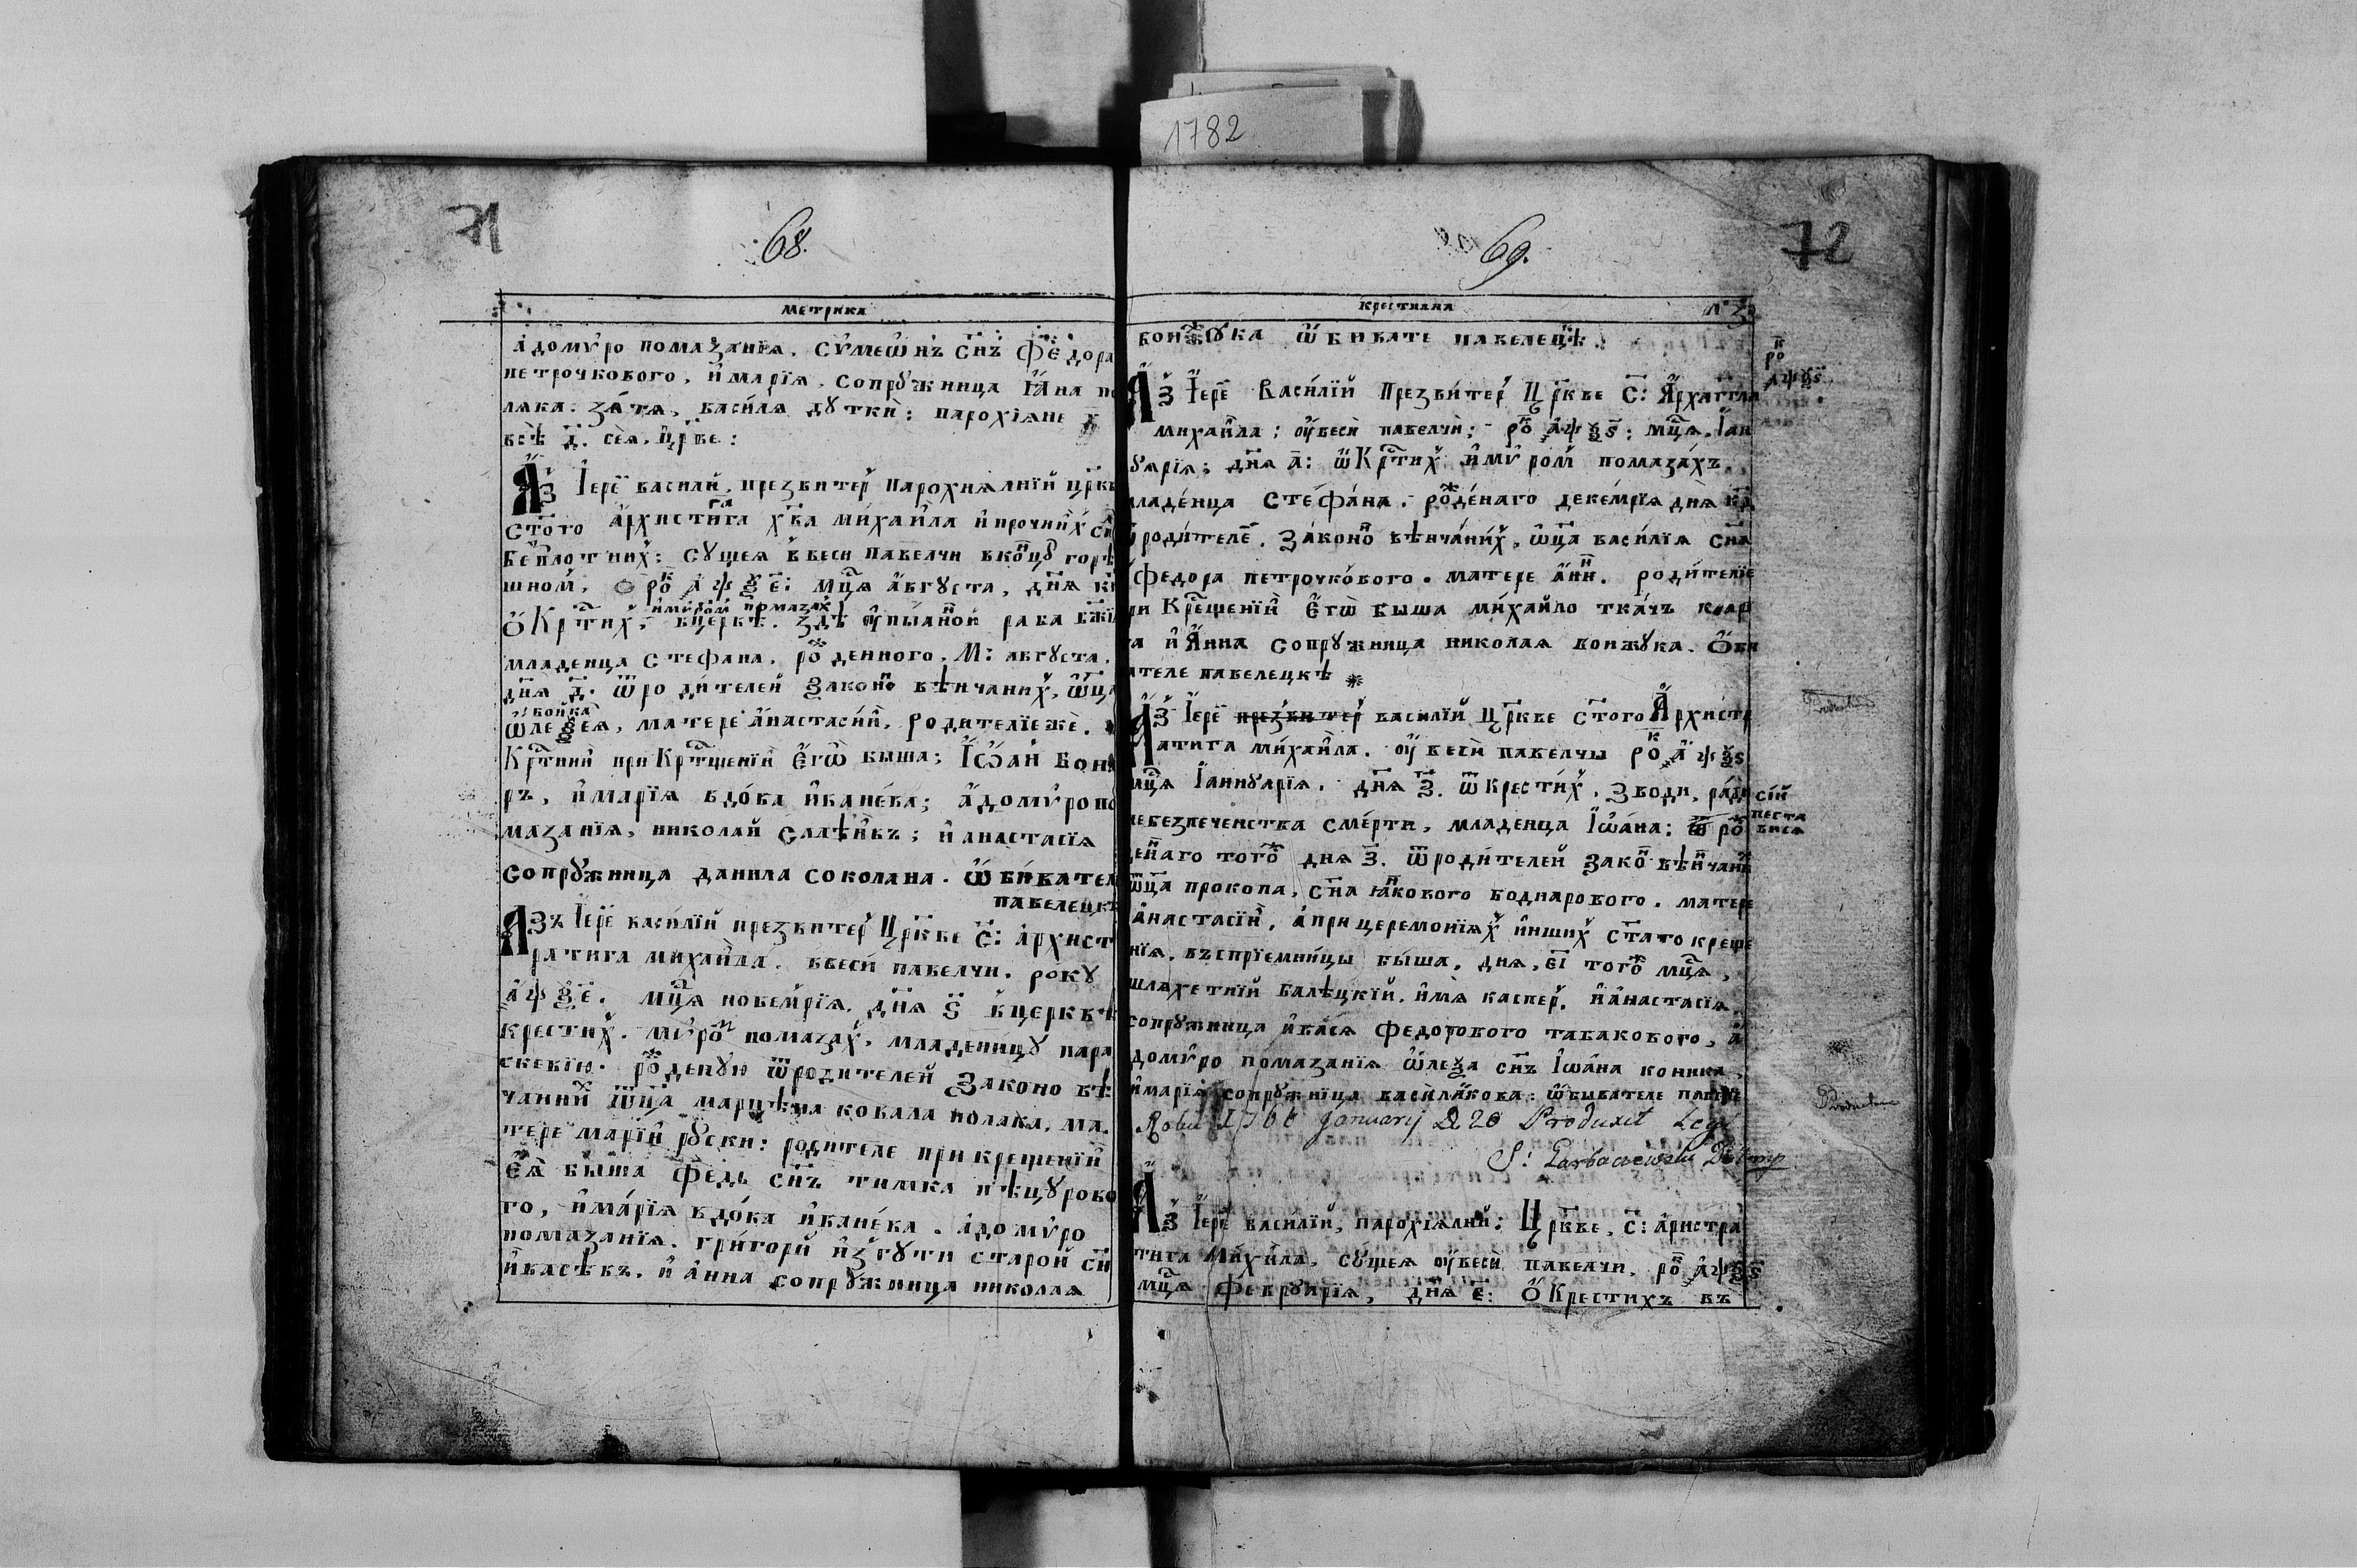 1782
71
68.
Метрика
а҆домѵ́ро помаза́нїѧ. Сѵ́меѡ҆нъ сн҃ъ Фе́дора
петрочкового, и҆марїѧ, сопрꙋжница ꙗ҆на по
лѧка: зѧ́тѧ, васи́лѧ дꙋткѝ: парохїѧне
всѣ д҃. сеѧ, цр҃кве:
А҆́з І҆ере́й васили, презвитер парохиѧлнїй црк҃в
ст҃ого а҆рхистига х҃ва ми́хаи҆ла и҆прочиих си
бе́плотних: сꙋщеѧ в҆веси павелчи вконцꙋ горѣ
шном, рок ҂аѱѯе҃: мц҃ѧ а҆вгꙋста, дн҃ѧ
и҆мѵ́ром помазах
ѡ҆Крⷭ҇тих, вцеркѣ. здѣ ᲂу҆пы́аной раба бж҃їѧ
младенца стефана, рожденного. М: августа,
дн҃ѧ д҃. ѿроди́телей законо вѣнчаних, ѿца
бойка
ѡ҆леѯеѧ, матере а҆настасїи, родителїеже.
Крⷭ҇тнии приКрⷭ҇щенїи е҆гѡ̀ быша; І҆ѡ҆ан Бон
ръ, и҆марїѧ вдо́ва и҆ване́ва; а҆домѵ́ропо
мазанїѧ, николай слаѣ̀въ; и҆ анастасїѧ
сопрꙋжница данила соколана. ѡ҆бива́тел
павелецкѣ
А҆зъ І҆ере́й васи́лїй презвитер Црк҃ве с҃: а҆рхист
ратига михаи҆ла. ввеси́ павелчи. ро́кꙋ
҂аѱѯе. мц҃ѧ новемрїѧ. дн҃ѧ ѕ҃ в҆церквѣ
крестих. мѵ́ром помазах, младеницꙋ пара
скевїю. рожденꙋю ѿродителей законо вѣ
чании ѿца марцѣна ковала полака, ма
тере марїи рꙋски: родителе прикрещенїи
е҆ѧ̀ быша Федь сн҃ъ тимка пѣцꙋрово
го, и҆ма́рїѧ вдо́ка и҆ване́ка. а҆домѵ́ро
помазанїѧ. григорй и҆згꙋти старой сн҃
и҆васѣвъ. и҆ а҆нна сопрꙋжница николаѧ
69.
72
Крестиана
бонжꙋка ѡ҆бивате павелецѣ.
рок
҂аѱѯѕ
А҆́з І҆ере́й Васи́лїй Презви́тер Црк҃ве С҃: А҆рхаггла
михаи҆ла: ᲂу҆веси павелчи: рок ҂аѱѯѕ: мц҃ѧ. І҆ан
ꙋарїѧ: дн҃ѧ а҃: ѡ҆Крⷭ҇тих и҆мѵ́ром помаза́хъ.
младе́нца Сте́фа́на. рожде́наго деке́мрїѧ днѧ̀ кд
ѿроди́телей. за́коно вѣнча́них, ѿца васи́лїѧ сн҃а
федора петрочко́вого. матере а҆нни. роди́телїе
при Крⷭ҇щенїи е҆гѡ̀ быша ми́хайло тка́чъ коар
га и҆ А҆нна сопрꙋжница николаѧ бонжꙋка. ѡ҆би
вателе павелецкѣ
А҆́з І҆ере́й презвитер василїй Црк҃ве ст҃ого А҆рхистр
атига ми́хаи҆ла. ᲂу҆ веси павелчы рок ҂аѱѯѕ
мц҃ѧ І҆аннꙋарїѧ. дн҃ѧ з҃. ѿкрести́х. з води, ра́ди
сїй
преста
висѧ
небезпеченства сме́рти, младенца І҆ѡ҆а́на: ро
денаго того днѧ з҃. ѿроди́телей зако вѣнчани
ѿца прокопа, сн҃а ꙗ҆ковового боднарового. матере
а҆настасїи, а҆прицеремонїѧх и҆нших ст҃аго креще
нїѧ, въспрїемни́цы бы́ша. днѧ, е҃ı того мц҃ѧ,
шлѧхетнїй Балѣцкїй. и҆мѧ̀ каспер, и҆а҆настасїѧ
сопрꙋжница и҆васѧ Федорового табакового, а҆
домѵ́ро помазанїѧ ѡ҆леѯа сн҃ъ І҆ѡ҆а́на коника,
и҆марїѧ сопрꙋжнїца васила́кова: ѡ҆бывателе павелце
Roku 1766 January D 20 Produxit Legi
А҆́з І҆ере́й василїй, парохїѧлнй: Црк҃ве, с҃: а҆ристра
тига Ми́хила, сꙋ́щеѧ ᲂу҆веси павелчи, рок ҂аѱѯѕ
мц҃ѧ Феврꙋарїѧ, дн҃ѧ е҃: ѡ҆Крестихъ въ